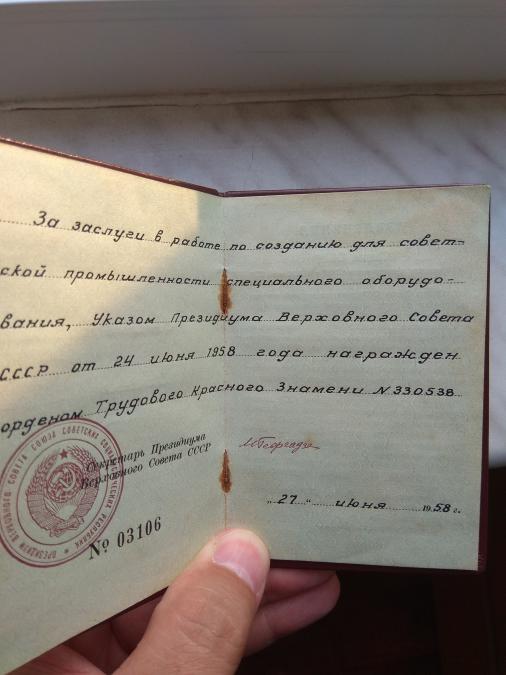 За заслуги в работе по созданию для совет-
ской промышленности специального оборудо-
вания, Указом Президиума Верховного Совета
СССР от 24 июня 1958 года награжден
орденом Трудового Красного Знамени N 330538
Секретарь Президиума
Верховного Совета СССР
М Георгадзе
„27“ июня 1958 г.
ПРЕЗИДИУМ ВЕРХОВНОГО СОВЕТА СОЮЗА СОВЕТСКИХ СОЦИАЛИСТИЧЕСКИХ РЕСПУБЛИК
№ 03106